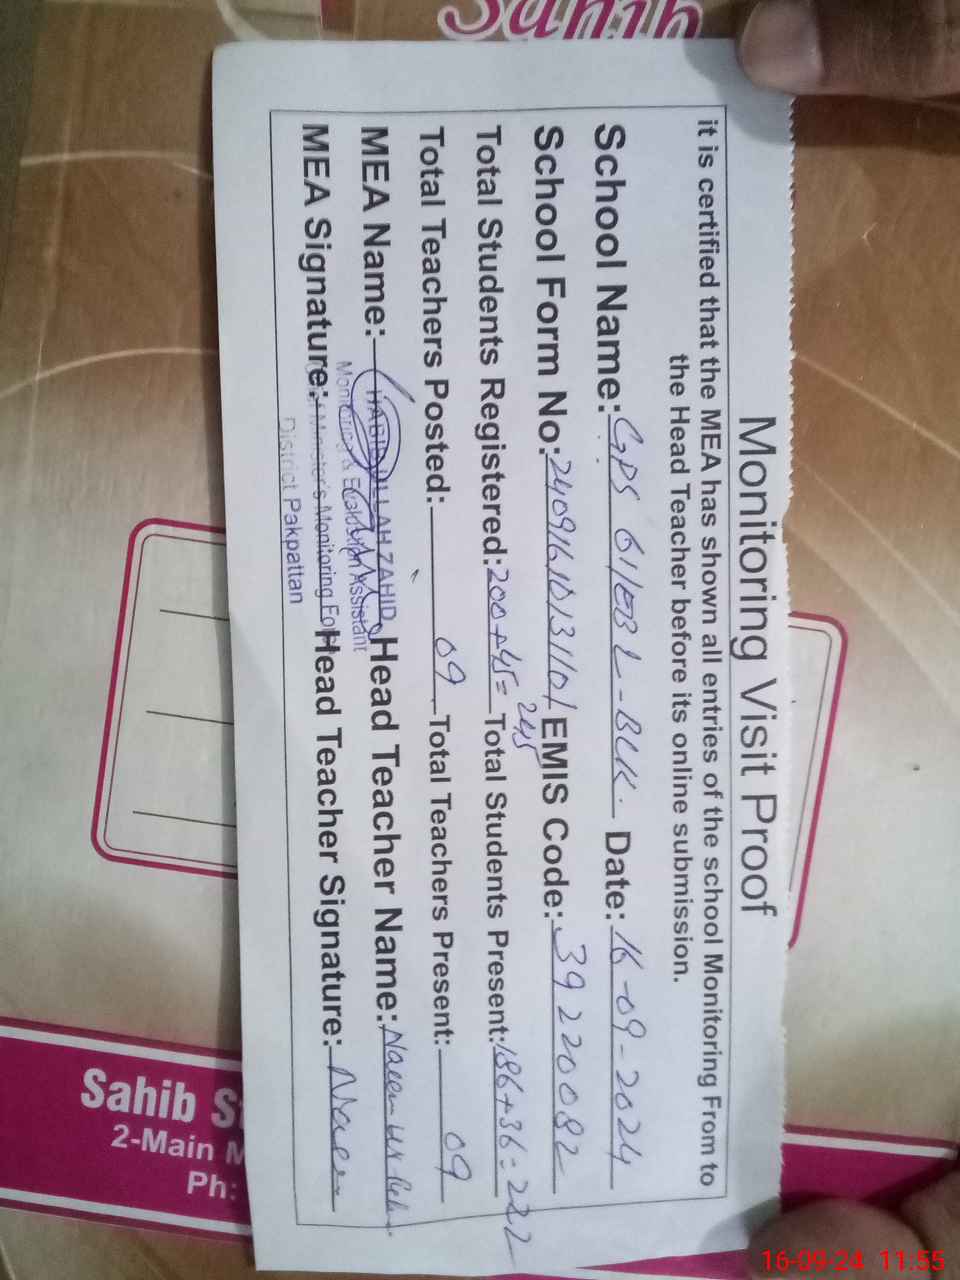 Sahib
Monitoring Visit Proof
it is certified that the MEA has shown all entries of the school Monitoring From to
the Head Teacher before its online submission.
School Name: GPS 61/EB L-BLK. Date: 16-09-2024
School Form No: EMIS Code: 39220082
Total Students Registered: 200+45= 245 Total Students Present: 186+36=222
Total Teachers Posted: 09 Total Teachers Present: 09
MEA Name: HABIB ULLAH ZAHID Head Teacher Name: Naeem
Monitoring & Evaluation Assistant
MEA Signature: Chief Minister's Monitoring Head Teacher Signature: Naeem
District Pakpattan
Sahib
2-Main
Ph:
16-09-24 11:55